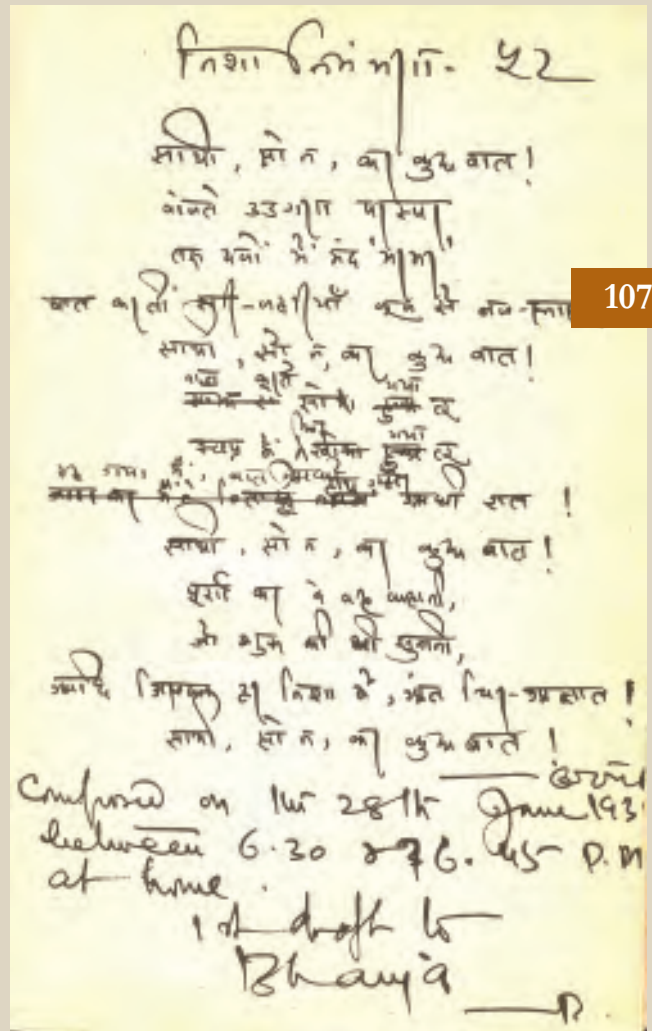 निशा निमंत्रण - ५२
साथी, सो न, कर कुछ बात!
बोलते उडुगण परस्पर,
तरु दलों में मंद मरमर,
107
बात करतीं सरि-लहरियाँ कूल से जल-स्ना
साथी, सो न, कर कुछ बात!
बात करते सो गया तू
स्वप्न में फिर खो गया तू
रह गया मैं आधी रात!
साथी, सो न, कर कुछ बात!
पूर्ण कर दे वह कहानी,
जो शुरू की थी सुनानी,
आदि जिसका हर निशा में, अंत चिर-अज्ञात!
साथी, सो न, कर कुछ बात!
Composed on the 28th June 193
between 6.30 & 6.45 P.M
at home.
1st draft to